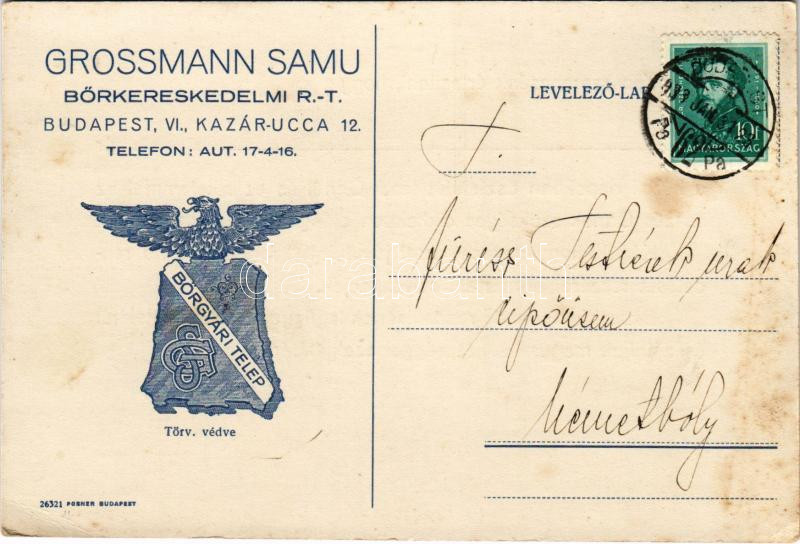 GROSSMANN SAMU
BŐRKERESKEDELMI R.-T.
BUDAPEST, VI., KAZÁR-UCCA 12.
TELEFON: AUT. 17-4-16.
BŐRGYÁRI TELEP
Törv. védve
26321 POSNER BUDAPEST
LEVELEZŐ-LAP
10f
MAGYARORSZÁG
T.
Fürész Testvérek urak
cipőüzem
Németbóly
darabanth